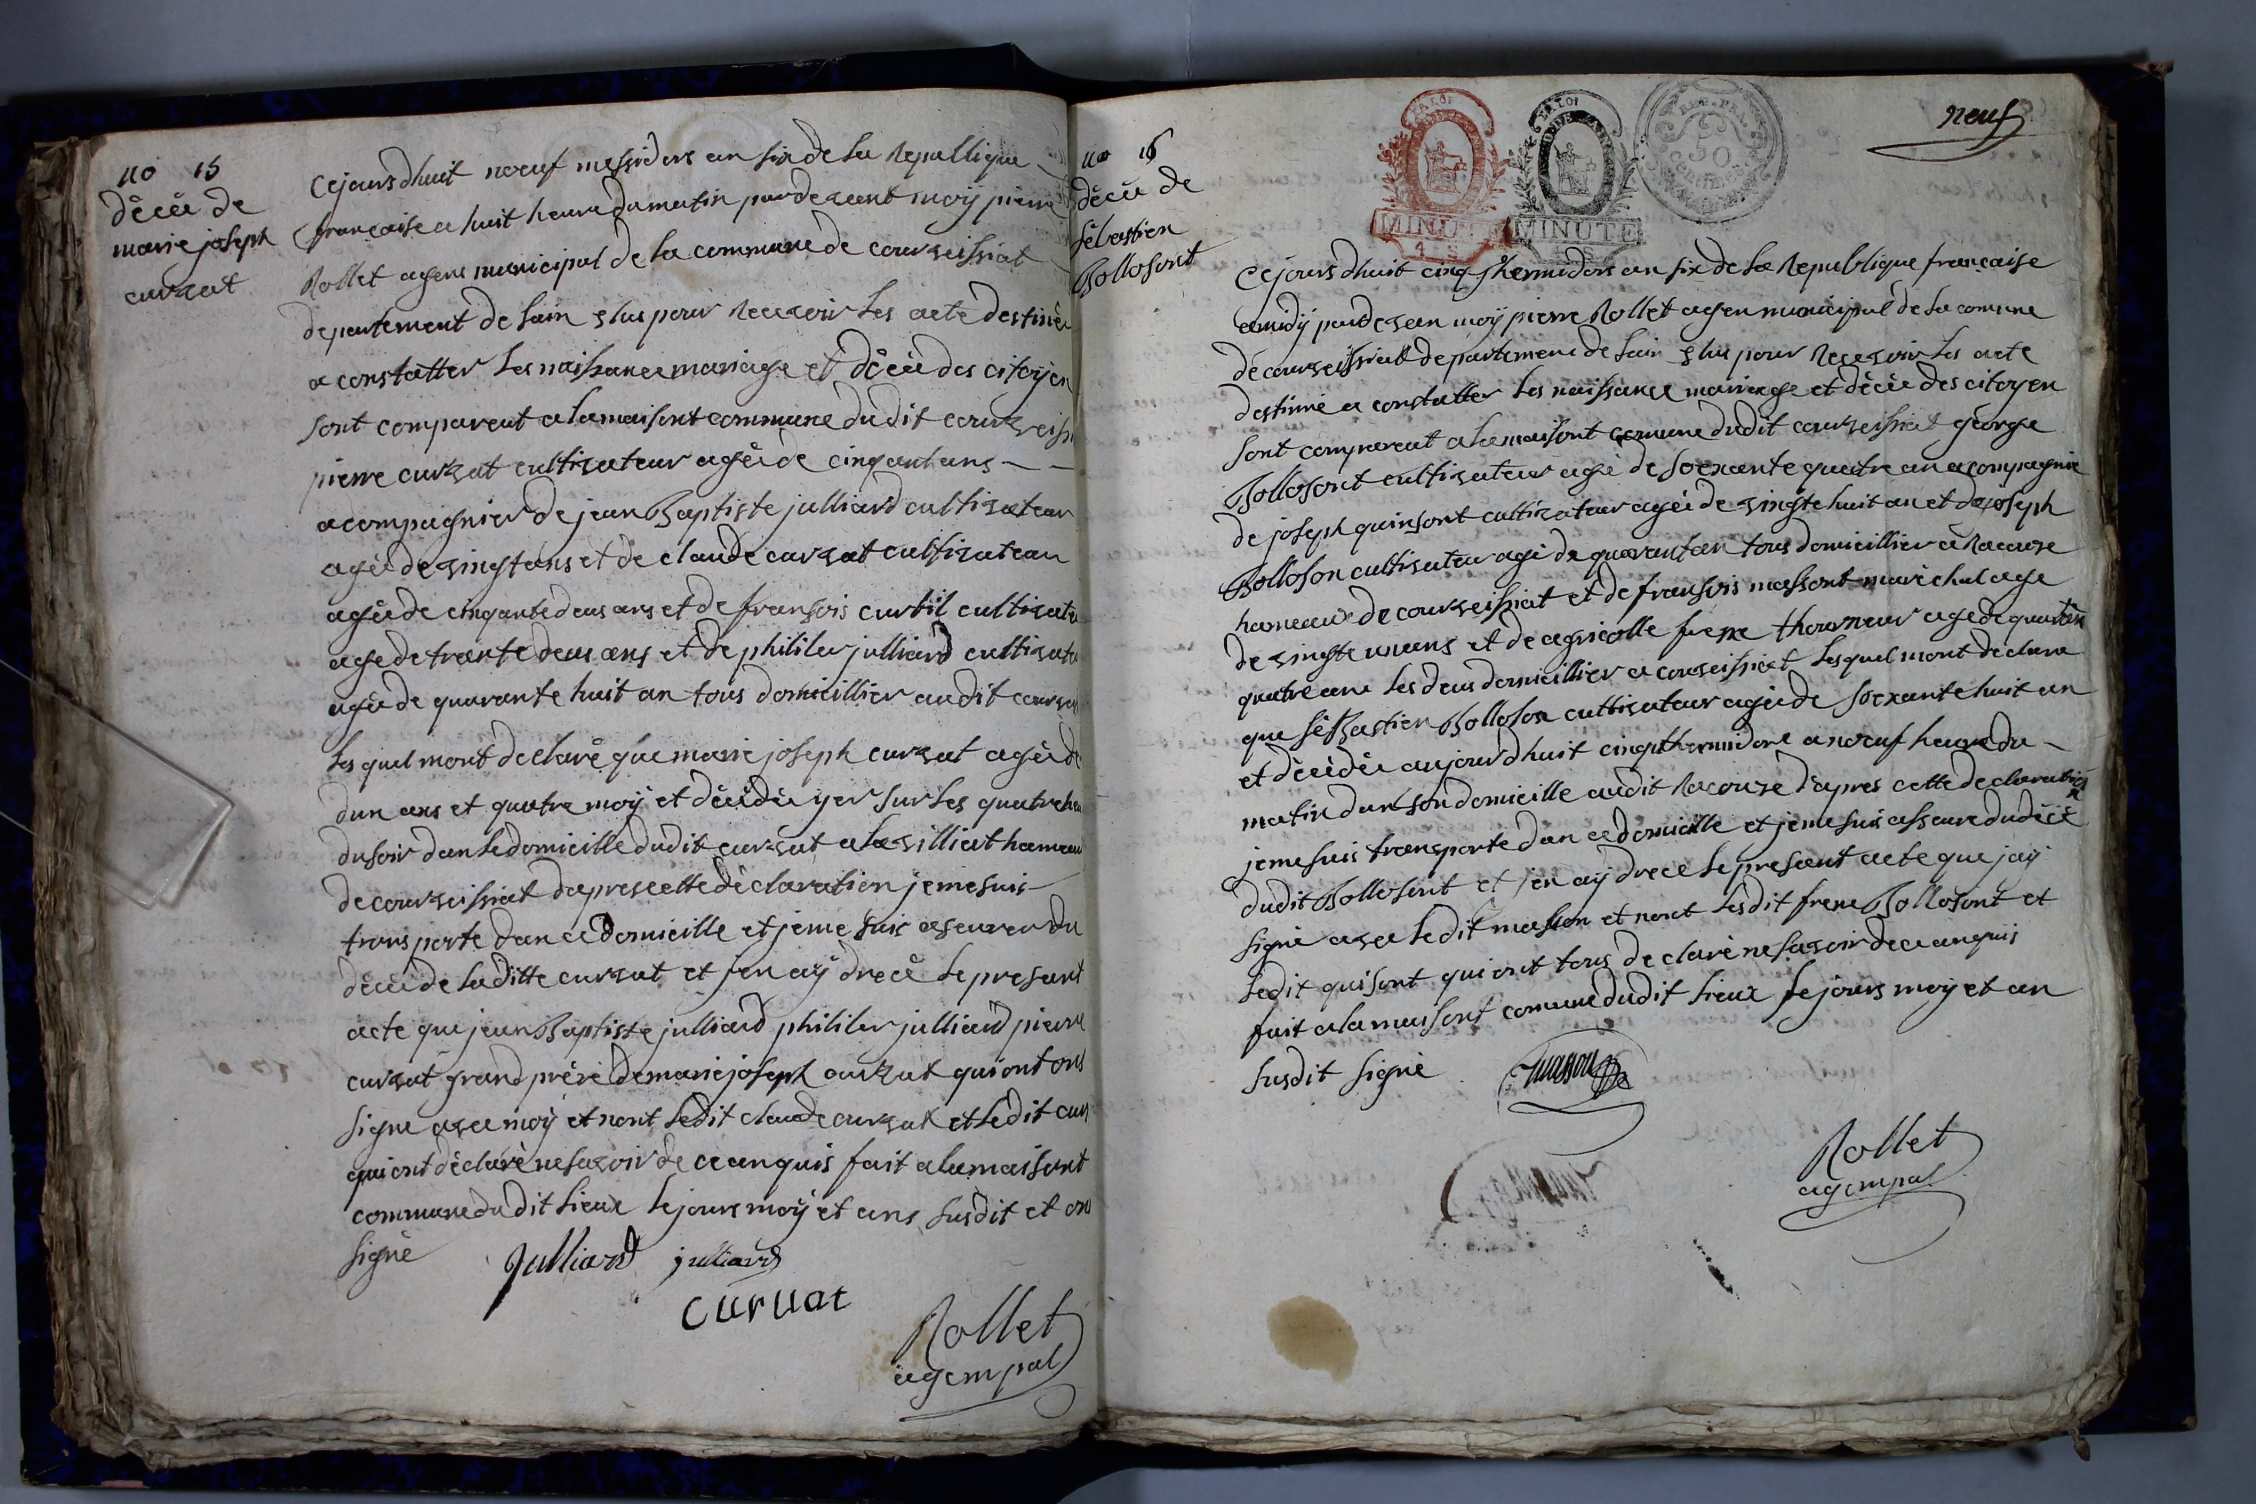 no 15
dècèe de
marie joseph
curvat
Cejours dhuit noeuf messidors an six de La Republique
française a huit heure du matin par devant moÿ pierre
Rollet agens municipal de la commune de courveissiat
departement de Lain elus pour Recevoir Les acte destinè
a constatter Les naissance mariage et dècèe des citoyen
sont comparent a lamaisont commune dudit courveissi
pierre curvat cultivateur agèe de cinquant ans
acompagnier de jean Baptiste julliard cultivateur
agèe de vingt ans et de claude curvat cultivateur
agèe de cinqante deus ans et de fransois curtil cultivate
age de trante deus ans et de phililer julliard cultivate
agèe de quarante huit an tous domicillier audit courve
Les quel mont declarè que marie joseph curvat agèe de
dun ans et quatre moÿ et dècèdèe yer sur Les quatre heu
dusoir dan Le domicille dudit curvat a La villiat hameau
de courveissiat dapres cette dèclaration jeme suis
transporte dan ce domicille et jeme suis aseurer du
dècèe de La ditte curvat et jen aÿ drecè Le presant
acte que jean Baptiste julliard phililer julliard pierre
curvat grand père de marie joseph curvat qui ont ons
signe avee moÿ et nont Ledit claude curvat et Ledit cur
qui ont dèclarè ne savoir de ce anquis fait a lamaisont
commune dudit Lieux Lejours moÿ et ans susdit et ons
signè
Julliard julliard
Curuat
Rollet
agempal
neuf
LA LOI
LA LOI
REP. FRA.
50
CENTIMES
MINUTE
MINUTE
no 16
dècèe de
sèbastien
Bollosont
Cejours dhuit cinq thermidors an six de La Republique française
amidÿ par devan moÿ pierre Rollet agen municipal de La comune
de courveissiat departement de Lain elus pour Recevoir Les acte
destinné a constatter Les naissance mariage et dècèe des citoyen
sont comparent a lamaisont comune dudit courveissiat gèorge
Bollosont cultivateur agè de soexante quatre an acompagnie
de joseph quinsont cultivateur agèe de vingte huit an et de joseph
Bolloson cultivateu agè de quarantan tous domicillier a Racouse
hameau de courveissiat et de fransois massont marèchal age
de vingte un ans et de agricolle frere thourneur age de quarante
quatre ane Les deus domicillier a couveissiat Lesquel mont declare
que sèbastien Bolloson cultivateur agèe de soexante huit an
et dècèdèe aujourdhuit cinq thermidore a noeuf heure du
matin dan son domicille audit Racouse dapres cette declaration
jeme suis transporte dan ce domicille et jeme suis asseure du dècè
dudit Bollosont et jen aÿ drece Le presant acte que jaÿ
signè avee Ledit masson et nont Lesdit frere Bollosont et
Ledit quisont qui ont tous declarè ne savoir de ce anquis
fait a lamaisont comune dudit Lieux Lejours moÿ et an
susdit signè
masson
Rollet
agempal